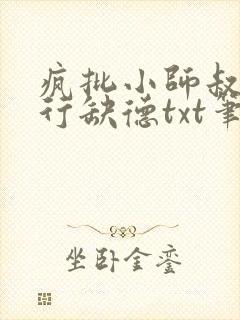 疯批小師叔
行缺德txt筆
坐卧金銮